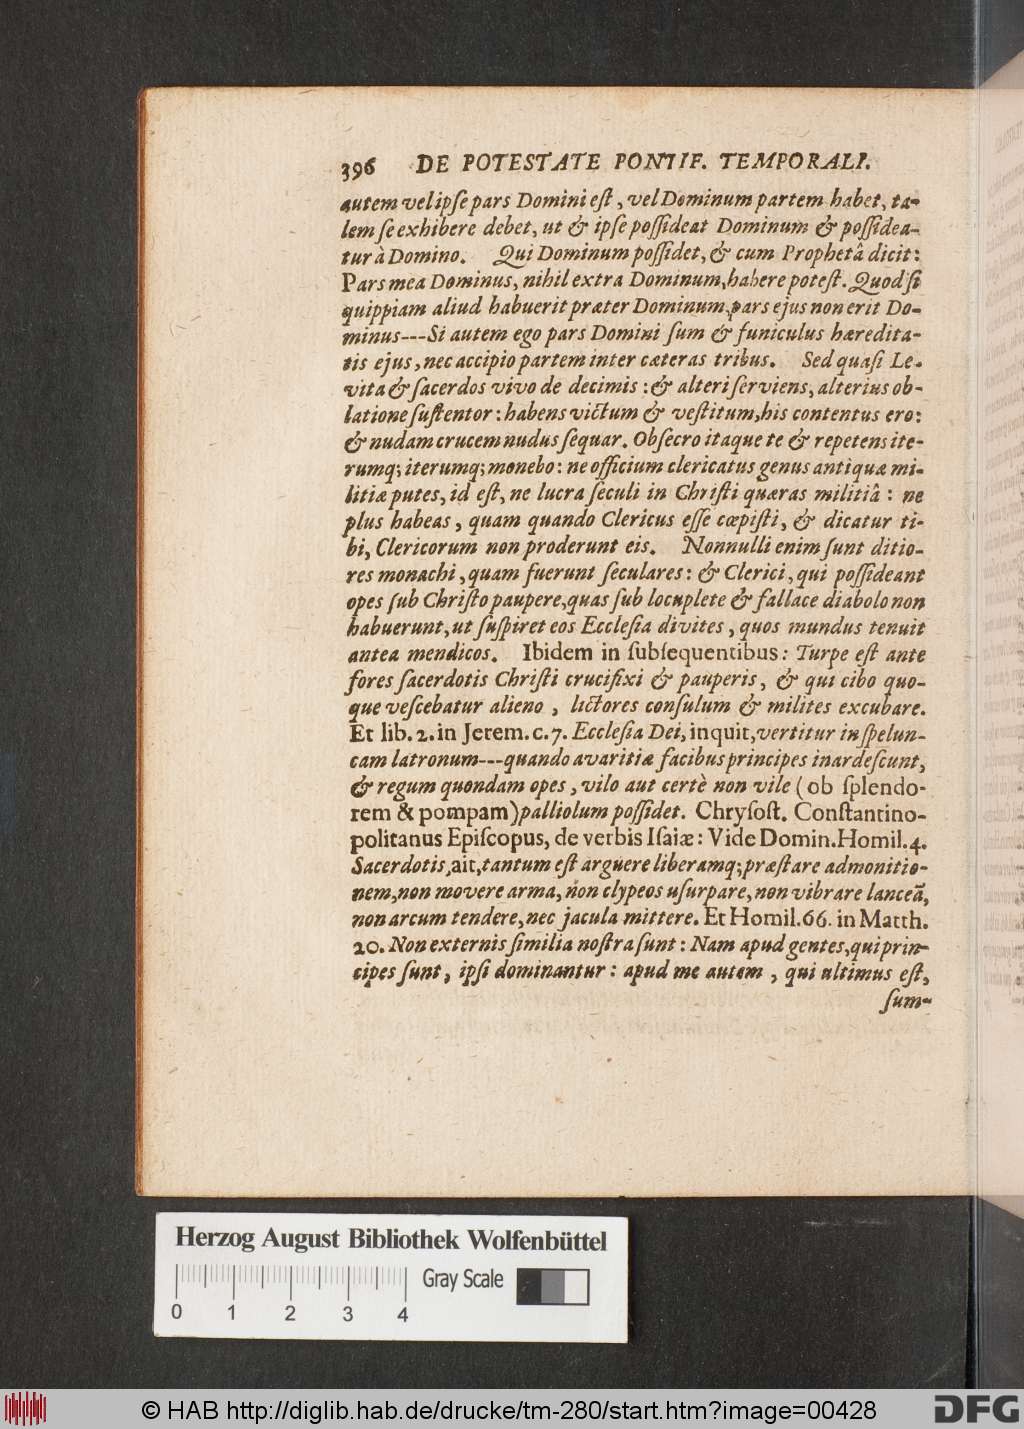 396 DE POTESTATE PONTIF. TEMPORALI.
autem vel ipſe pars Domini eſt, vel Dominum partem habet, ta-
lem ſe exhibere debet, ut & ipſe poſſideat Dominum & poſſidea-
tur à Domino. Qui Dominum poſſidet, & cum Prophetâ dicit:
Pars mea Dominus, nihil extra Dominum, habere poteſt. Quod ſi
quippiam aliud habuerit præter Dominum, pars ejus non erit Do-
minus---Si autem ego pars Domini ſum & funiculus hæredita-
tis ejus, nec accipio partem inter cæteras tribus. Sed quaſi Le-
vita & ſacerdos vivo de decimis: & alteri ſerviens, alterius ob-
latione ſuſtentor: habens victum & veſtitum, his contentus ero:
& nudam crucem nudus ſequar. Obſecro itaque te & repetens ite-
rumq; iterumq; monebo: ne officium clericatus genus antiquæ mi-
litiæ putes, id eſt, ne lucra ſeculi in Chriſti quæras militiâ: ne
plus habeas, quam quando Clericus eſſe cœpiſti, & dicatur ti-
bi, Clericorum non proderunt eis. Nonnulli enim ſunt ditio-
res monachi, quam fuerunt ſeculares: & Clerici, qui poſſideant
opes ſub Chriſto paupere, quas ſub locuplete & fallace diabolo non
habuerunt, ut ſuſpiret eos Eccleſia divites, quos mundus tenuit
antea mendicos. Ibidem in ſubſequentibus: Turpe eſt ante
fores ſacerdotis Chriſti crucifixi & pauperis, & qui cibo quo-
que veſcebatur alieno, lictores conſulum & milites excubare.
Et lib. 2. in Jerem. c. 7. Eccleſia Dei, inquit, vertitur in ſpelun-
cam latronum---quando avaritiæ facibus principes inardeſcunt,
& regum quondam opes, vilo aut certè non vile (ob ſplendo-
rem & pompam) palliolum poſſidet. Chryſoſt. Conſtantino-
politanus Epiſcopus, de verbis Iſaiæ: Vide Domin. Homil. 4.
Sacerdotis, ait, tantum eſt arguere liberamq; præſtare admonitio-
nem, non movere arma, non clypeos uſurpare, non vibrare lanceã,
non arcum tendere, nec jacula mittere. Et Homil. 66. in Matth.
20. Non externis ſimilia noſtra ſunt: Nam apud gentes, qui prin-
cipes ſunt, ipſi dominantur: apud me autem, qui ultimus eſt,
ſum-
Herzog August Bibliothek Wolfenbüttel
Gray Scale
0 1 2 3 4
© HAB http://diglib.hab.de/drucke/tm-280/start.htm?image=00428
DFG